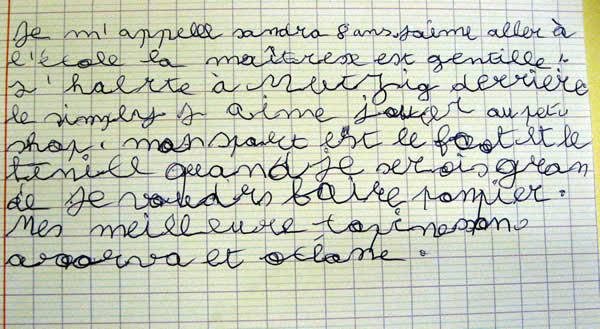 Je m'appelle sandra 8 ans. j'aime aller à
l'école la maîtrese est gentille.
j'habite à Mutzig derrière
le simply j aime jouer au petit
shop. mon sport est le foot et le
tenill quand je serois gran
de je voudrs faire pompier.
Mes meilleure copines son
et oceane.